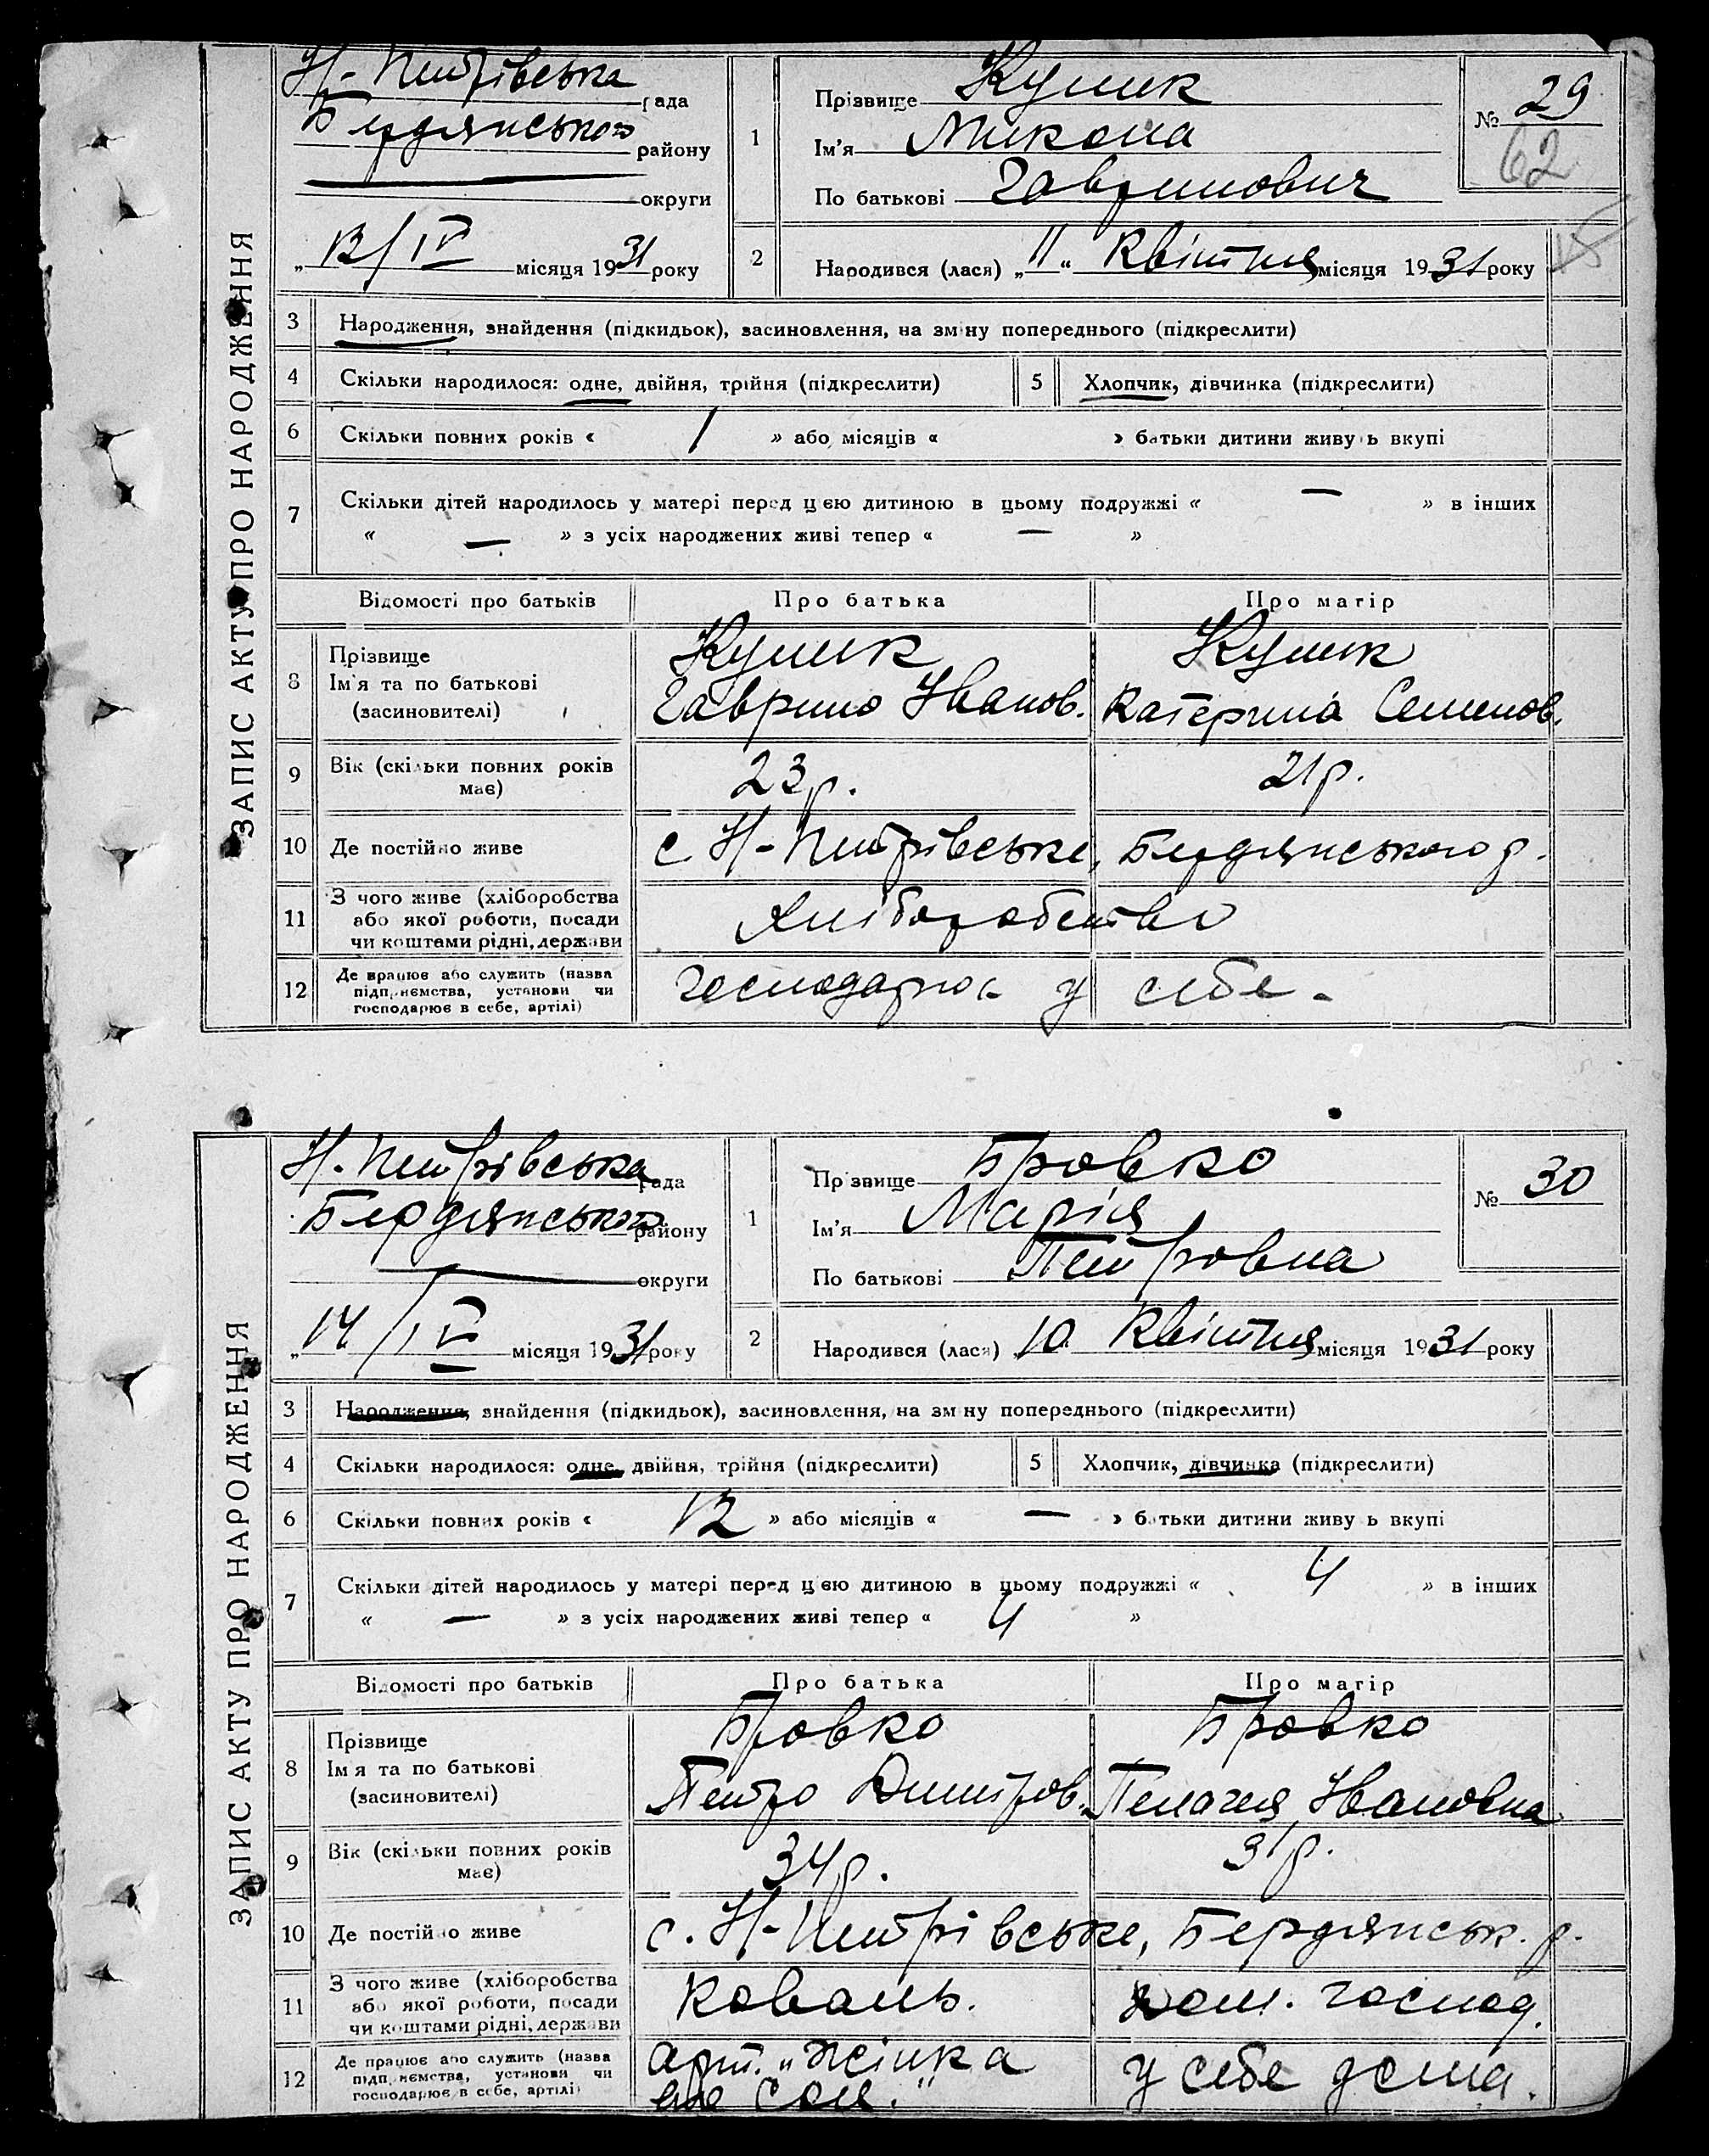 ЗАПИС АКТУ ПРО НАРОДЖЕННЯ
Н-Петрівська рада
Бердянського району
округи
„ 12/IV місяця 1931 року
1
Прізвище Кулик
Ім'я Микола
По батькові Гаврилович
№ 29
62
2
Народився (лася) „11“ Квітня місяця 1931 року
3 Народження, знайдення (підкидьок), засиновлення, на зміну попереднього (підкреслити)
4 Скільки народилося: одне, двійня, трійня (підкреслити)
5 Хлопчик, дівчинка (підкреслити)
6 Скільки повних років « 1 » або місяців « » батьки дитини живуть вкупі
7 Скільки дітей народилось у матері перед цією дитиною в цьому подружжі « — » в інших
« — » з усіх народжених живі тепер « — »
Відомості про батьків Про батька Про матір
8 Прізвище
Ім'я та по батькові
(засиновителі)
Кулик
Гаврило Іванов.
Кулик
Катерина Семенов.
9 Вік (скільки повних років
має)
23 р.
21 р.
10 Де постійно живе с Н-Петрівське, Бердянського р.
11 З чого живе (хліборобства
або якої роботи, посади
чи коштами рідні, держави
Хліборобство
12 Де працює або служить (назва
підприємства, установи чи
господарює в себе, артілі)
у себе.
ЗАПИС АКТУ ПРО НАРОДЖЕННЯ
Н-Петрівська рада
Бердянського району
округи
„ 14/IV місяця 1931 року
1
Прізвище Бровко
Ім'я Марія
По батькові Петровна
№ 30
2
Народився (лася) „10 Квітня місяця 1931 року
3 Народження, знайдення (підкидьок), засиновлення, на зміну попереднього (підкреслити)
4 Скільки народилося: одне, двійня, трійня (підкреслити)
5 Хлопчик, дівчинка (підкреслити)
6 Скільки повних років « 12 » або місяців « — » батьки дитини живуть вкупі
7 Скільки дітей народилось у матері перед цією дитиною в цьому подружжі « 4 » в інших
« — » з усіх народжених живі тепер « 4 »
Відомості про батьків Про батька Про матір
8 Прізвище
Ім'я та по батькові
(засиновителі)
Бровко
Петро Дмитров.
Бровко
Пелагея Івановна
9 Вік (скільки повних років
має)
34 р.
31 р.
10 Де постійно живе с. Н-Петрівське, Бердянськ. р.
11 З чого живе (хліборобства
або якої роботи, посади
чи коштами рідні, держави
Коваль.
дом. господ.
12 Де працює або служить (назва
підприємства, установи чи
господарює в себе, артілі)
Арт. „Жінка
у себе дома.